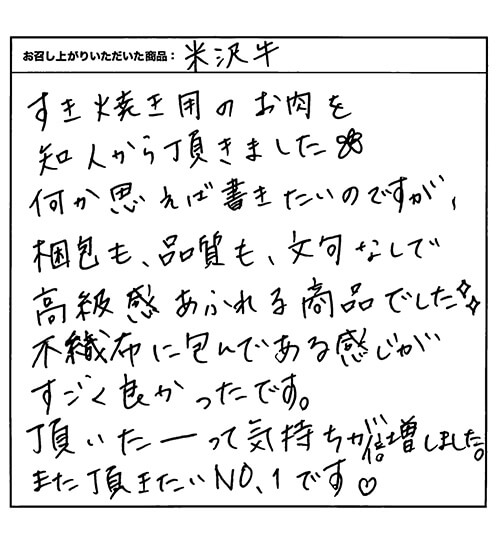 お召し上がりいただいた商品： 米沢牛
すき焼き用のお肉を
知人から頂きました
何か思えば書きたいのですが、
梱包も、品質も、文句なしで
高級感あふれる商品でした
不織布に包んである感じが
すごく良かったです。
頂いたーって気持ちが倍増しました。
また頂きたいNO、1です♡